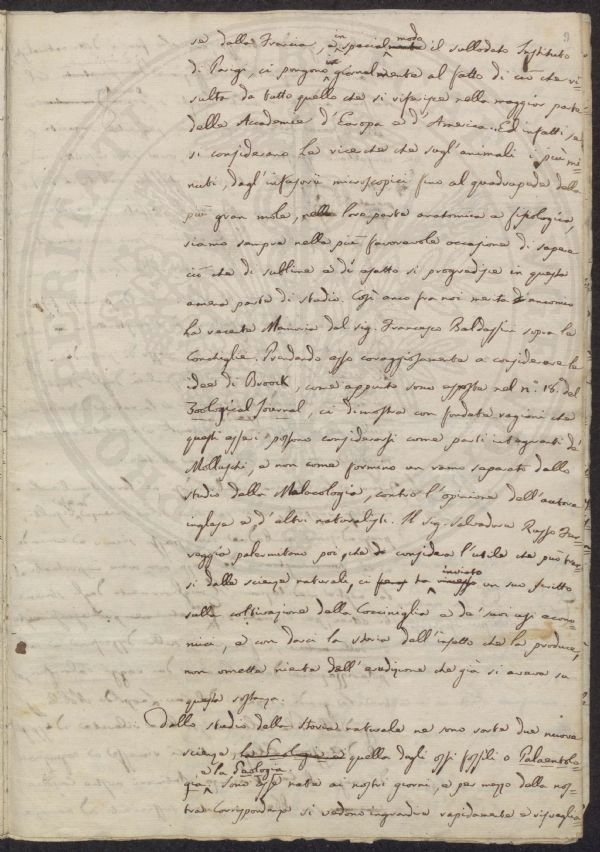 9
se dalla Francia, e in special modo il sullodato Instituto
di Parigi, ci pongono giornalmente al fatto di ciò che ri-
sulta da tutto quello che si riferisce nella maggior parte
delle Accademie d'Europa e d'America. Ed infatti se
si considerano le ricerche che sugl'animali i più mi-
nuti, dagl'infusorii microscopici fino al quadrupede della
più gran mole, nella loro parte anatomica e fisiologica,
siamo sempre nella più favorevole occasione di sapere
ciò che di sublime e di esatto si progredisce in questa
amena parte di studio. Così anco fra noi merita encomio
la recente Memoria del sig. Francesco Baldassini sopra le
Conchiglie. Prendendo esso coraggiosamente a considerare le
idee di Broock, come appunto sono esposte nel n.° 18. del
Zoological Journal, ci dimostra con fondate ragioni che
questi esseri possono considerarsi come parti integranti de'
Molluschi, e non come formino un ramo separato dallo
studio della Malacologia, contro l'opinione dell'autore
inglese e d'altri naturalisti. Il sig. Salvadore Russo Fer-
reggia palermitano poi che considera l'utile che può trar-
si dalle scienze naturali, ci ha inviato un suo scritto
sulla coltivazione della Cocciniglia e de' suoi usi econo-
mici, e con darci la storia dell'insetto che la produce,
non ometta niente dell'erudizione che già si aveva su
questa sostanza.
Dallo studio della storia naturale ne sono sorte due nuove
scienze, la Geologia e quella degli ossi fossili o Palaeontolo-
gia e la Geologia. sono esse nate ai nostri giorni, e per mezzo della nos-
tra corrispondenza si vedono ingrandire rapidamente e risveglia